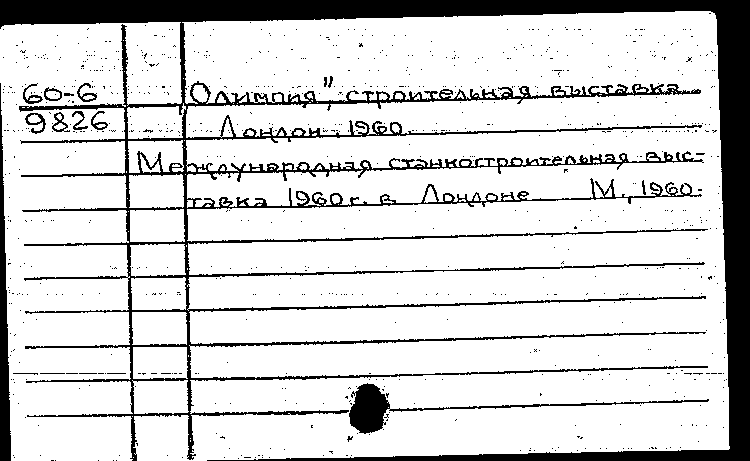 60-6
9826
„Олимпия", строительная выставка
Лондон, 1960.
Международная станкостроительная выс-
тавка 1960 г. в Лондоне М., 1960.